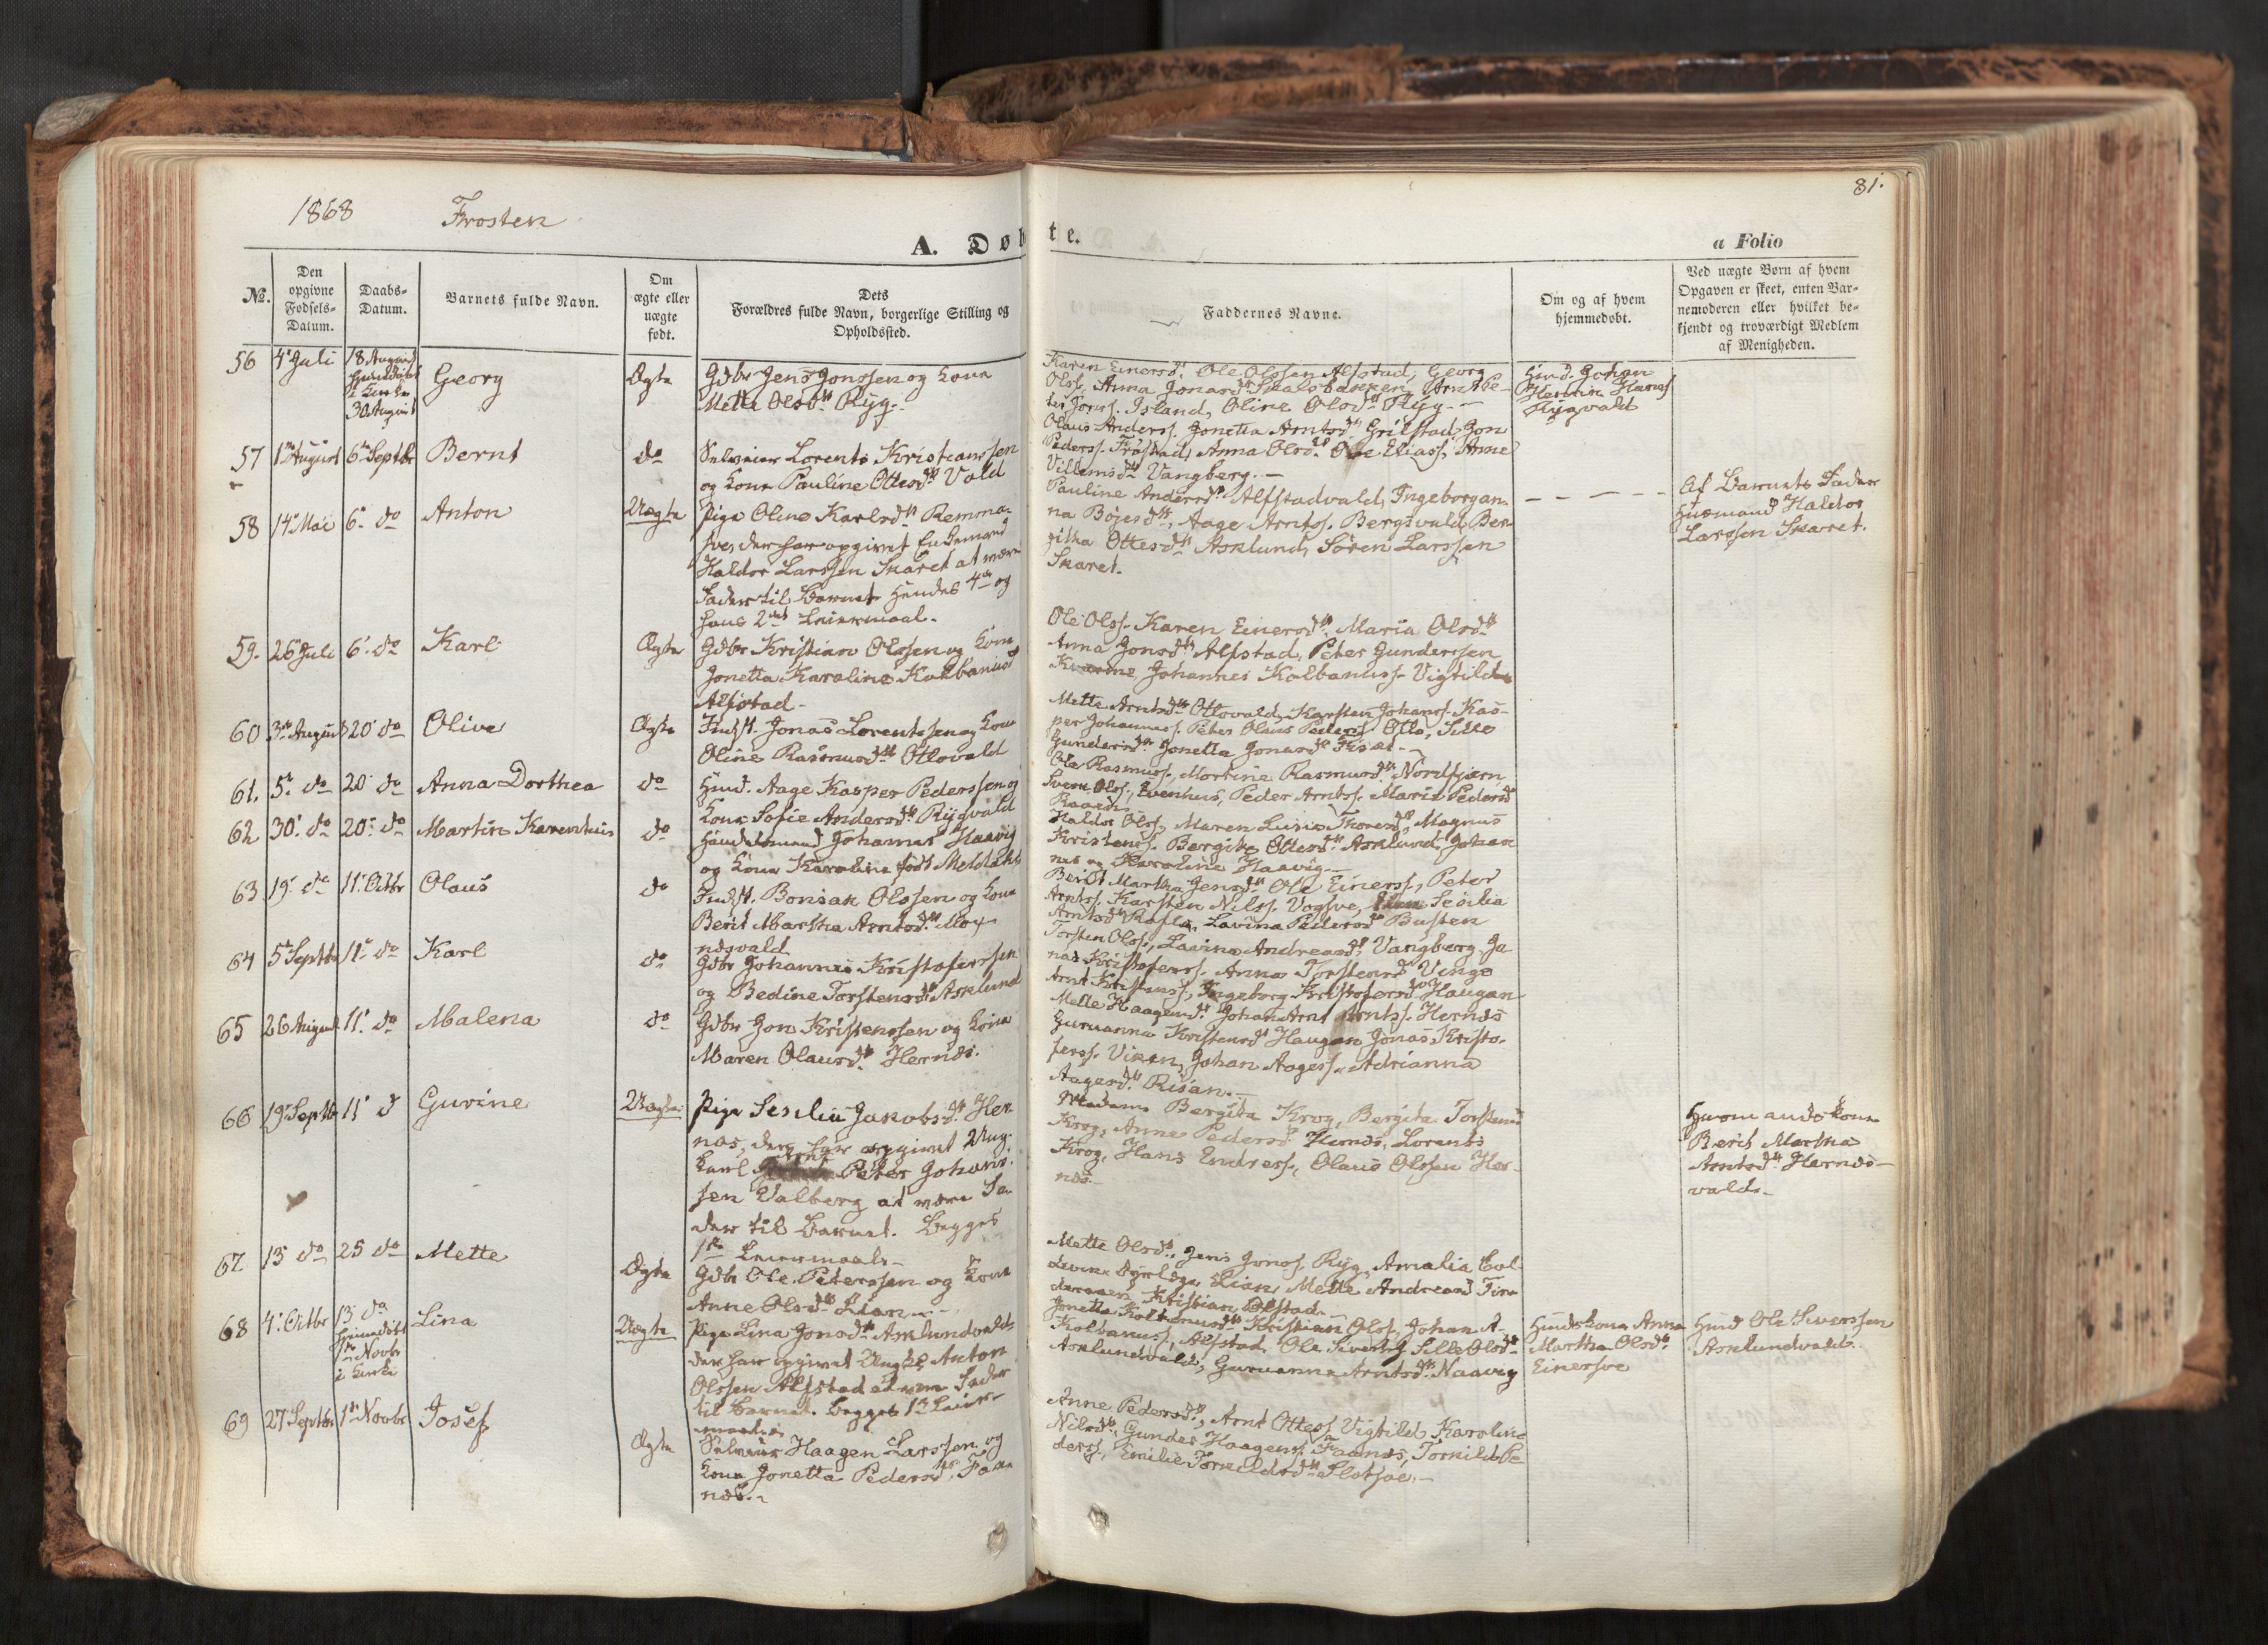 1868 Frosten
81.
A. Døbte.
a Folio
No.
Den opgivne Fødsels-Datum.
Daabs-Datum.
Barnets fulde Navn.
Om ægte eller uægte født.
Dets Forældres fulde Navn, borgerlige Stilling og Opholdssted.
Faddernes Navne.
Om og af hvem hjemmedøbt.
Ved uægte Børn af hvem Opgaven er skeet, enten Barnemoderen eller hvilket bekjendt og troværdigt Medlem af Menigheden.
56 4 Juli 18 August
30 August
Georg
Ægte
Gdbr Jens Jonssen og Kone
Mette Olsdtr Ryg.
Karen Einersd. Ole Olssen Alfstad, Georg
Olss, Anna Jonasdtr Skalsbakken, Arnt Pe-
ter Jonss. Island, Oline Olsdtr Ryg.
Husd. Johan
Henrik Hanss
Rygvald
57 1ste August 6te Septbr Bernt
do
Selveier Lorents Kristianssen
og Kone Pauline Ottesdtr Vold
Olaus Anderss. Jonetta Arntsdtr Grilstad, Jon
Pederss. Frøstad, Anna Olsd. Ole Eliass, Anne
Villemsdtr Vangberg.
58 14 Mai 6 do Anton
Uægte
Pige Oline Karlsdtr Remma-
sve, der har opgivet Enkemand
Haldor Larssen Skaret at være
Fader til Barnet. Hendes 4de og
hans 2det Leiermaal.
Pauline Andersdtr Alfstadvald, Ingeborgan-
na Böjesdtr, Aage Arntss. Bergsvald, Ber-
githa Ottesdtr Asklund, Sören Larssen
Skaret.
Af Barnets Fader
Husmand Haldor
Larssen Skaret.
59. 26 Juli 6. do Karl
Ægte
Gdbr Kristian Olssen og Kone
Jonetta Karoline Kolbanusd
Alfstad
Ole Olss. Karen Einersdtr. Maria Olsdtr
Anna Jonsdtr Alfstad, Peter Gunderssen
Kvarme, Johannes Kolbanuss. Vigtild
60 3de August 20 do Olive
Ægte
Indst. Jonas Lorentssen og Kone
Oline Rasmusdtr Ottovald
Mette Arntsdtr Ottovald, Karsten Johans. Kas-
per Johanness. Peter Olaus Pederss Otto, Sille
Gundersdtr Jonetta Jonasd
61. 5te do 20 do Anna Dorthea
do
Husd. Aage Kasper Pederssen og
Kone Sofie Andersdtr Rygvald
Ole Rasmuss., Martine Rasmusdtr Nordfjærn
Sveen Olss, Evenhus, Peder Arntss. Marit Pedersd
62 30. do 20. do Martin Karenthius
do
Handelsmand Johannes Haavig
og Kone Karoline født Meldahl
Haldor Olss, Maren Lusie Thoresd, Magnus
Kristens. Bergitte Ottesdtr Asklund, Johan-
nes og Karoline Haavig
63 19. do 11. Octbr Olaus
do
Indst. Bonsak Olssen og Kone
Berit Martha Arntsdtr Mox-
nesvald
Berit Martha Jensdtr Ole Einerss, Peter
Arntss. Karsten Nilss. Vogsve, Secilia
Arntsdtr Rafla, Lavina Pedersd Busten
64 5te Septbr 11. do Karl
do
Gdbr Johannes Kristoferssen
og Bedine Torstensdtr Asklund
Torsten Olss, Lavina Andreasd Vangberg, Jo-
nas Kristoferss. Anna Torstensd Vinge
Arnt Kristenss, Ingeborg Kristofersd Haugan
65 26 August 11. do Malena
do
Gdbr Jon Kristenssen og Kone
Maren Olausdtr Hernes.
Mette Haagensd. Johan Arnt Arntss. Hernæs
Guruanna Kristensd Haugan, Jonas Kristo-
ferss. Viken, Johan Aagess., Adrianna
Aagesdtr Risan.
66 19 Septbr 11. d Guvine
Uægte
Pige Sesilia Jakobsdtr Her-
næs, der har opgivet Ung-
karl Arnt Peter Johans-
sen Valberg at være Fa-
der til Barnet. Begges
1ste Leiermaal.
Madam Bergitta Krog, Bergita Torstensd
Krog, Anne Pedersd Hernæs, Lorents
Krog, Hans Endress., Olaus Olssen Her-
næs
Husmandskone
Berit Martha
Arntsdtr Hernæs-
vald.
67. 13 do 25 do Mette
Ægte
Gdbr Ole Peterssen og Kone
Anne Olsdtr Lian
Mette Olsd. Jens Jonss. Ryg, Amalia
Lian, Mette Andreasd
Kristian Alfstad.
68 4. Octbr 13 do
hjemmedøbt
1ste Novbr
i Kirke
Lina
Uægte
Pige Lina Jonsdtr Asklundvald
der har opgivet Ungkl Anton
Olssen Alfstad at være Fader
til Barnet. Begges 1ste Leier-
maal.
Jonetta Kolbanusdtr Kristian Olss. Johan A.
Kolbanuss, Alfstad, Ole Siverts. Sille Olsdtr
Asklundvald, Guruanna Arntsdtr Naavig
Husdskone Anna
Martha Olsdtr
Einersve
Husd Ole Siverssen
Asklundvald.
69 27 Septbr 1ste Novbr Josef
Ægte
Selveier Haagen Larssen og
Kone Jonetta Pedersdtr Faa-
næs.
Anne Pedersdtr, Arnt Ottess. Vigtild, Karoline
Nilsdtr, Gunder Haagens, Faanæs, Torkild Pe-
ders, Emilie Torkildsdtr Slotsve.